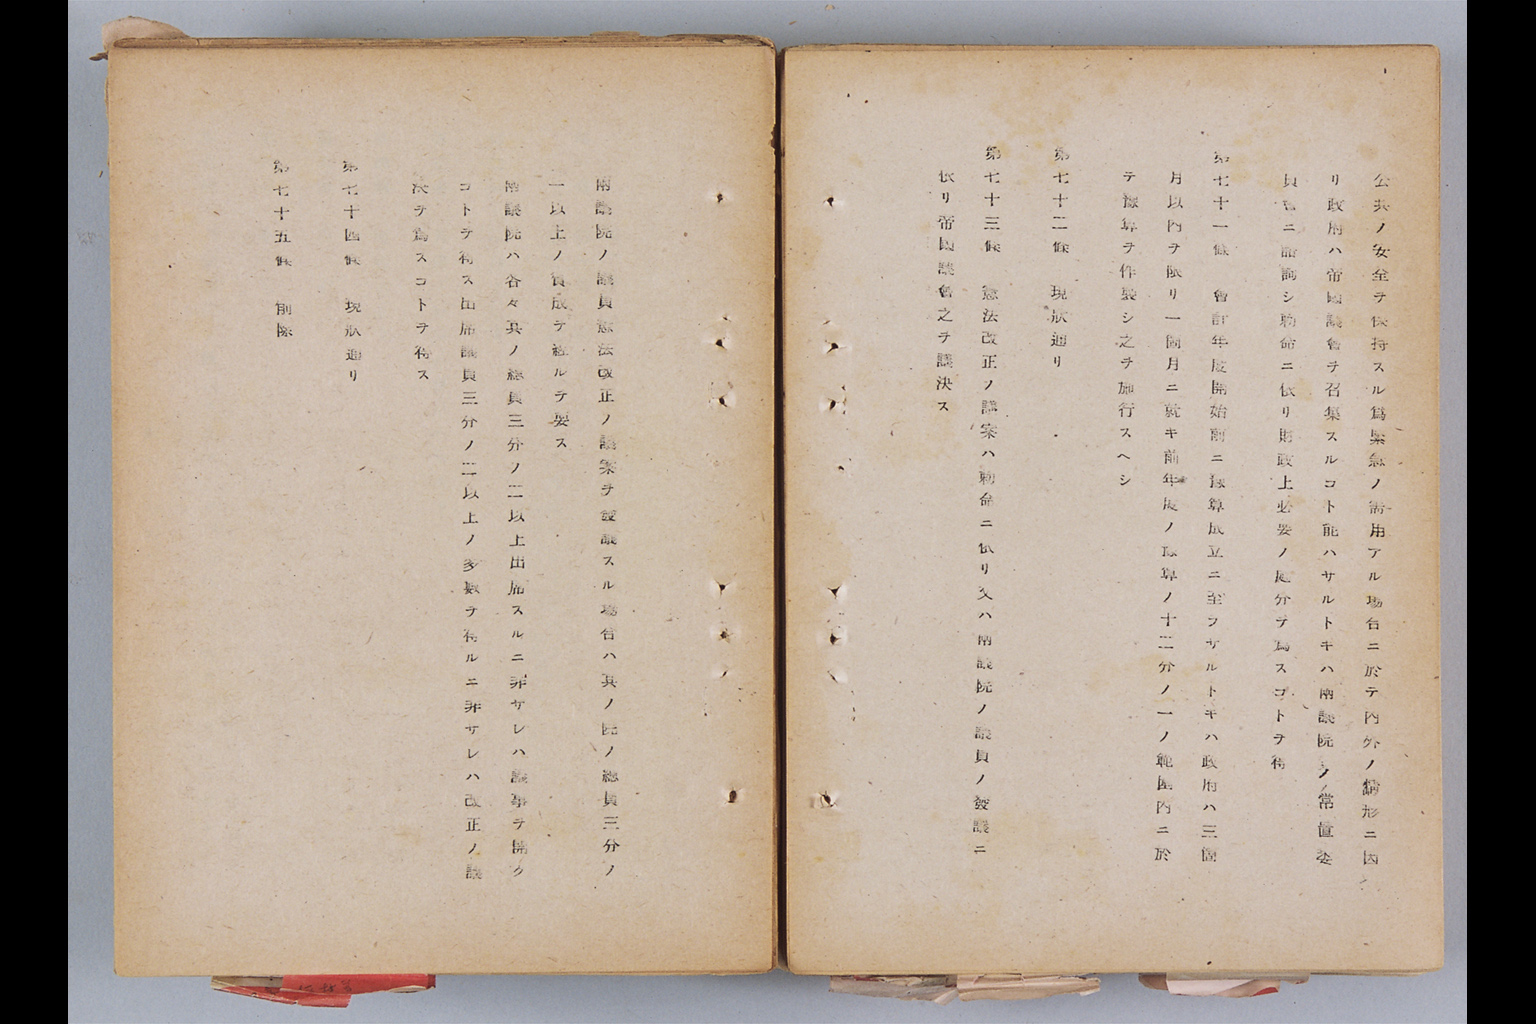 公共ノ安全ヲ保持スル爲緊急ノ需用アル場合ニ於テ内外ノ情形ニ因
リ政府ハ帝國議會ヲ召集スルコト能ハサルトキハ兩議院ノ常置委
員會ニ諮詢シ勅命ニ依リ財政上必要ノ處分ヲ爲スコトヲ得
第七十一條 會計年度開始前ニ豫算成立ニ至ラサルトキハ政府ハ三箇
月以内ヲ限リ一箇月ニ就キ前年度ノ豫算ノ十二分ノ一ノ範圍内ニ於
テ豫算ヲ作製シ之ヲ施行スヘシ
第七十二條 現狀通リ
第七十三條 憲法改正ノ議案ハ勅命ニ依リ又ハ兩議院ノ議員ノ發議ニ
依リ帝國議會之ヲ議決ス
兩議院ノ議員憲法改正ノ議案ヲ發議スル場合ハ其ノ院ノ總員三分ノ
一以上ノ賛成ヲ經ルヲ要ス
兩議院ハ各々其ノ總員三分ノ二以上出席スルニ非サレハ議事ヲ開ク
コトヲ得ス出席議員三分ノ二以上ノ多數ヲ得ルニ非サレハ改正ノ議
決ヲ爲スコトヲ得ス
第七十四條 現狀通リ
第七十五條 削除